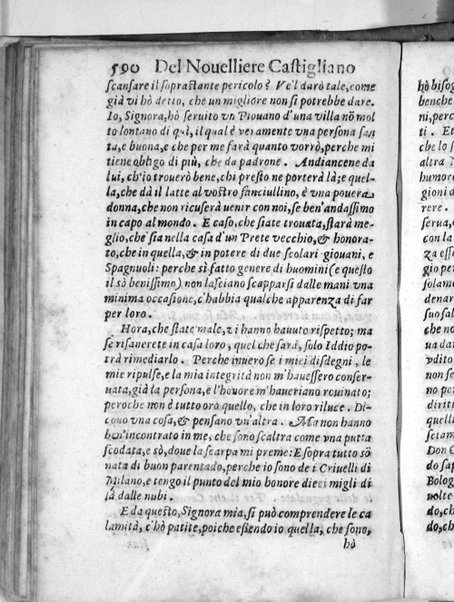 590 Del Nouelliere Castigliano
scansare il soprastante pericolo è Ve'l darò tale, come
già vi hò detto, che un migliore non si potrebbe dare.
Io, Signora, hò seruito vn Piouano d'una villa nõ mol
to lontano di quì, il qual è veramente vna persona san
ta, e buona, e che per me farà quanto vorrò, perche mi
tiene obligo di più, che da padrone. Andiancene da
lui, ch'io trouerò bene, chi presto ne porterà là; e quel-
la, che dà il latte al vostro fanciullino, è vna pouera
donna, che non ricuserà uenir con noi, se ben'andassimo
in capo al mondo. E caso, che siate trouata, starà me-
glio, che sia nella casa d'un Prete vecchio, & honora-
to, che in quella, & in potere di due scolari giouani, e
Spagnuoli: perche sì fatto genere di huomini (e questo
il sò benissimo) non lasciano scapparsi dalle mani vna
minima occasione, c'habbia qualche apparenza di far
per loro.
Hora, che state male, vi hanno hauuto rispetto; ma
se risanerete in casa loro, quel che sarà, solo Iddio po-
trà rimediarlo. Perche inuero se i miei disdegni, le
mie ripulse, e la mia integrità non m'hauessero conser-
uata, già la persona, e l'honore m'haueriano rouinato;
peroche non è tutto orò quello, che in loro riluce. Di-
cono vna cosa, & pensano vn'altra. Ma non hanno
ben'incontrato in me, che sono scaltra come vna putta
scodata, e sò, doue la scarpa mi preme: E sopra tutto sò
nata di buon parentado, perche io sono de i Criuelli di
Milano, e tengo il punto del mio honore dieci migli di
là dalle nubi.
E da questo, Signora mia, si può comprendere le ca
lamità, c'hò patite, poiche essendo io quella, che sono,
hò
hò bisog
benche
ni, per
ti. E
che lo s
altra
humo
gioni d
rere.
serua,
con ca
za esse
do dar
sodars
na dal
vdito
non
diriti
quest
sciam
Don C
do sap
Bolog
uest
do, ch
do, ch